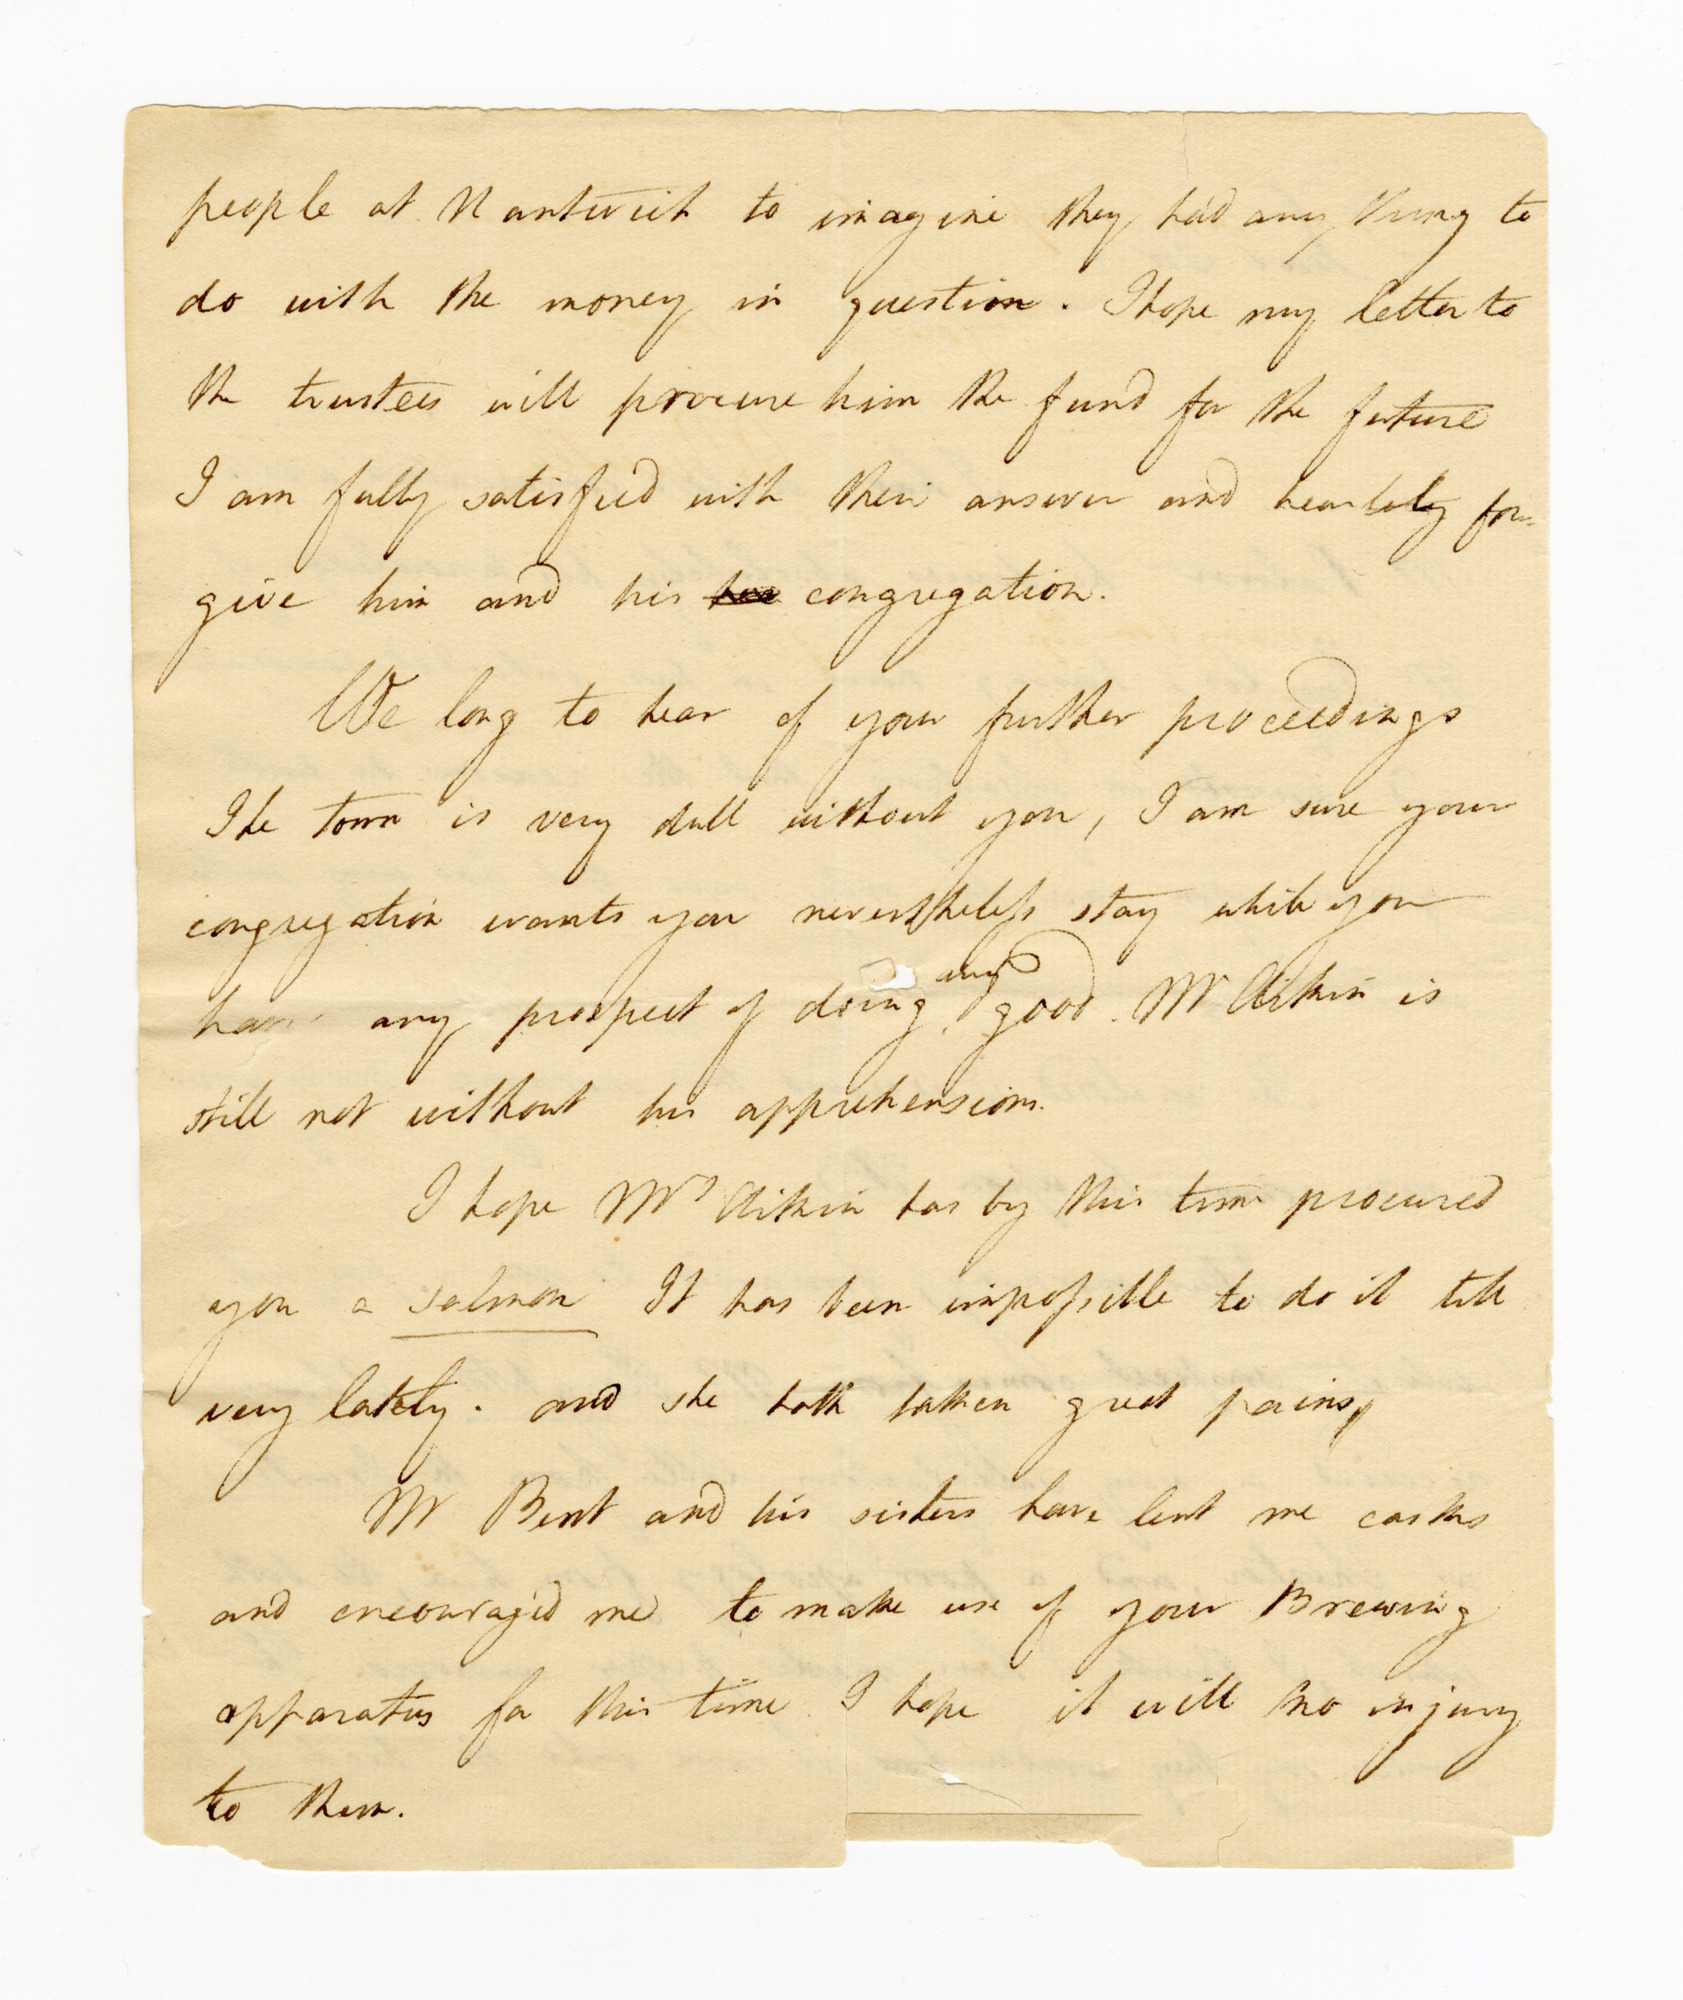 people at Nantwich to imagine they had any thing to
do with the money in question. I hope my letter to
the trustees will procure him the fund for the future
I am fully satisfied with their answer and heartily for-
give him and his congregation.
We long to hear of your further proceedings
The town is very dull without you, I am sure your
congregation wants you nevertheless stay while you
have any prospect of doing any good. Mr Aikin is
still not without his apprehensions.
I hope Mrs Aikin has by this time procured
you a salmon It has been impossible to do it till
very lately. and she hath taken great pains,
Mr Bent and his sisters have lent me casks
and encouraged me to make use of your Brewing
apparatus for this time I hope it will no injury
to them.